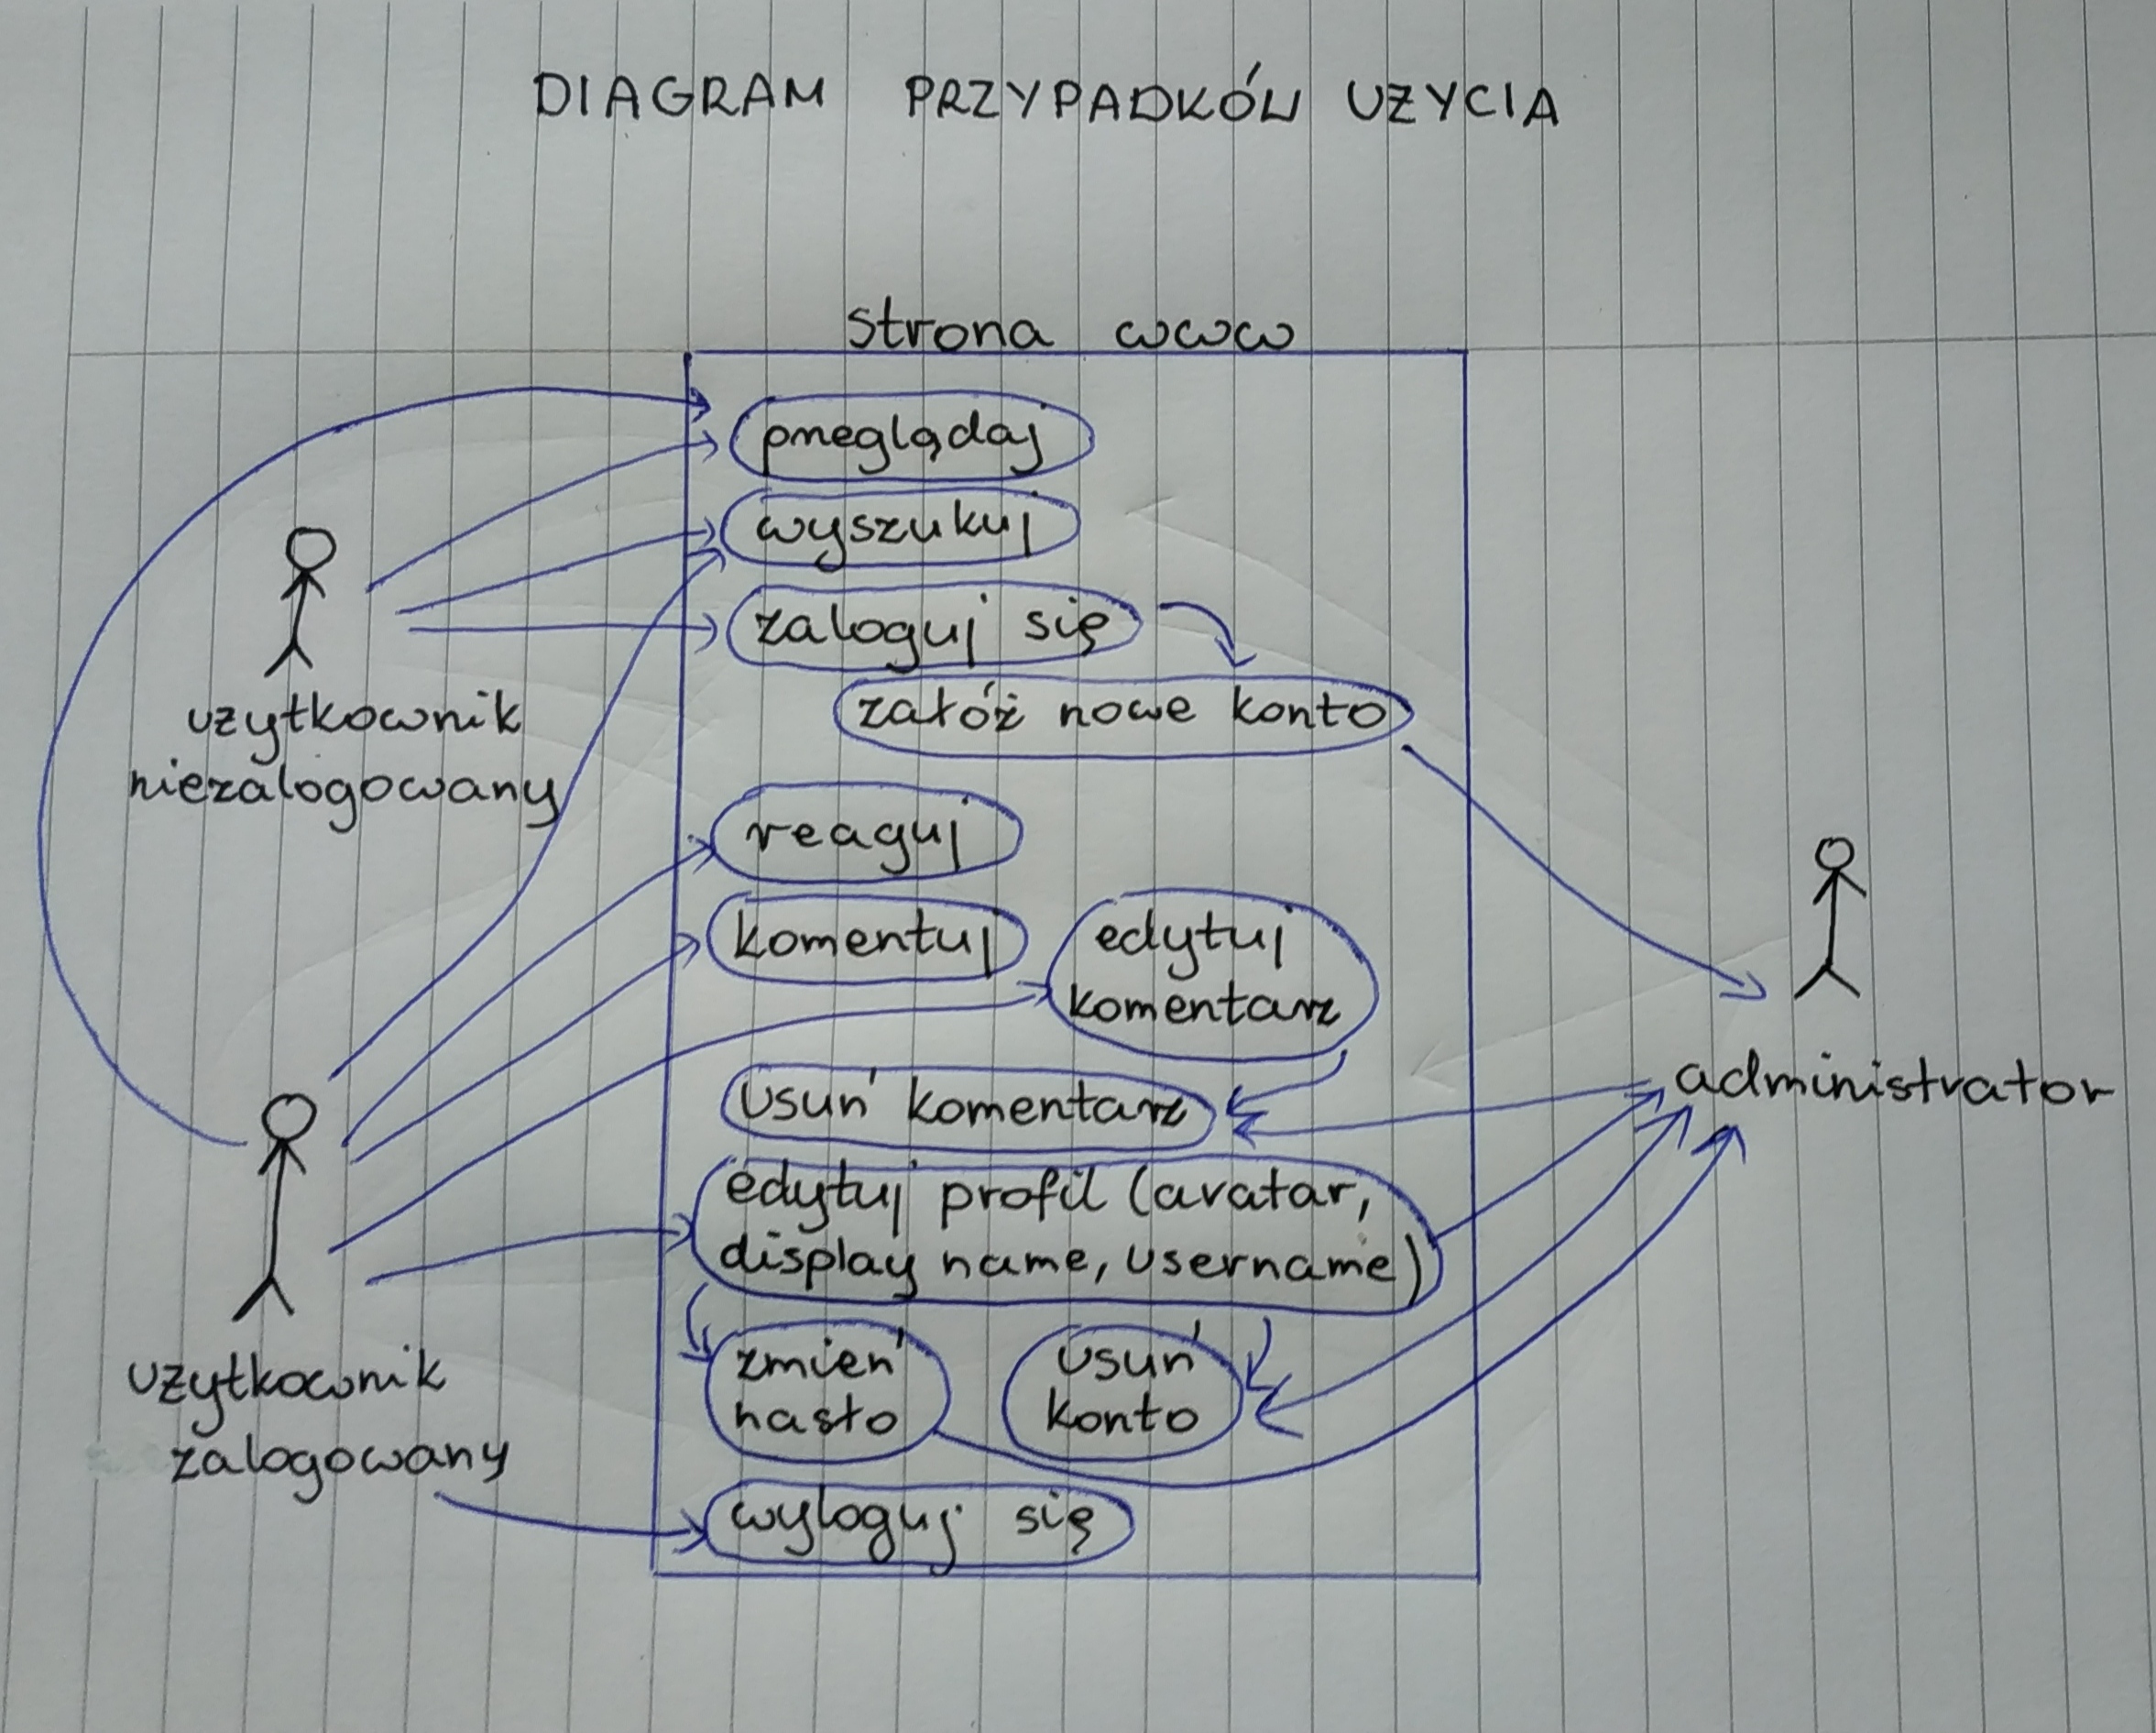 DIAGRAM PRZYPADKÓW UŻYCIA
strona www
przeglądaj
wyszukuj
zaloguj się
załóż nowe konto
użytkownik
niezalogowany
reaguj
komentuj
edytuj
komentarz
usuń komentarz
administrator
edytuj profil (avatar,
display name, username)
zmień
hasło
usuń
konto
użytkownik
zalogowany
wyloguj się